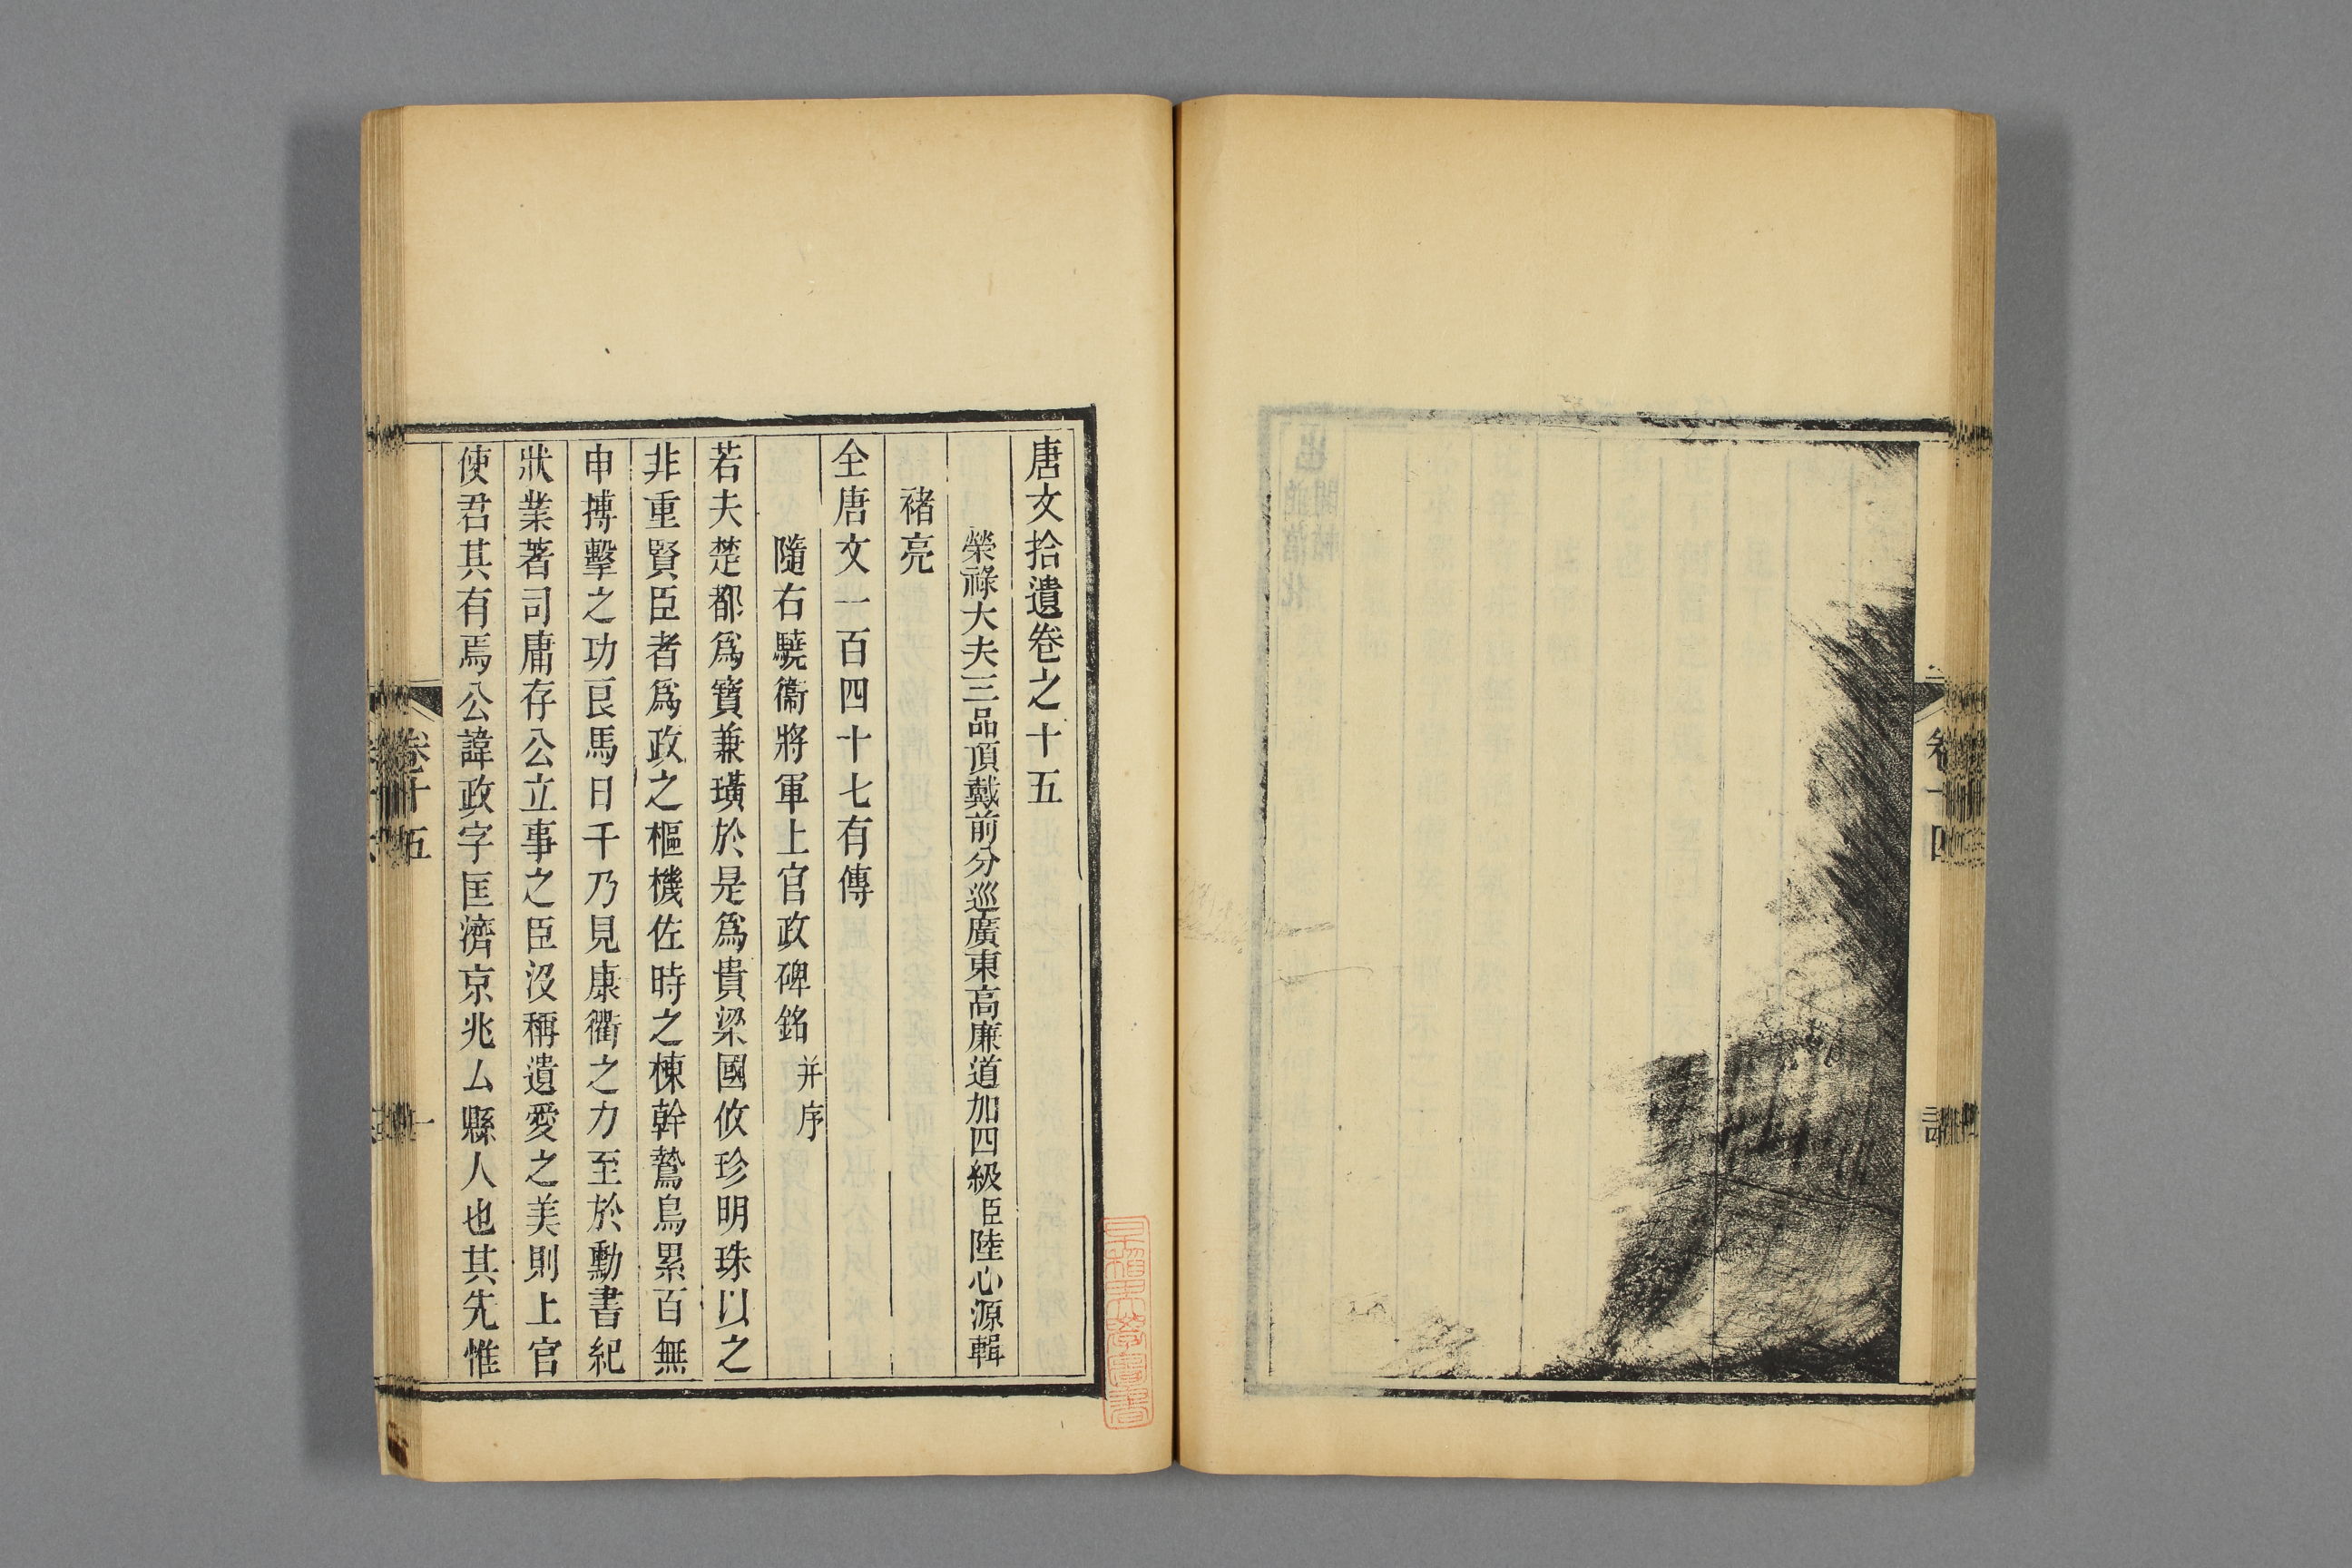 唐文拾遺卷之十五
榮祿大夫三品頂戴前分巡廣東高廉道加四級臣陸心源輯
褚亮
全唐文一百四十七有傳
隨右驍衞將軍上官政碑銘并序
若夫楚都爲寶兼璜於是爲貴梁國攸珍明珠以之
非重賢臣者爲政之樞機佐時之棟幹鷙鳥累百無
申搏擊之功良馬日千乃見康衢之力至於勳書紀
狀業著司庸存公立事之臣沒稱遺愛之美則上官
使君其有焉公諱政字匡濟京兆厶縣人也其先惟
卷十五
一